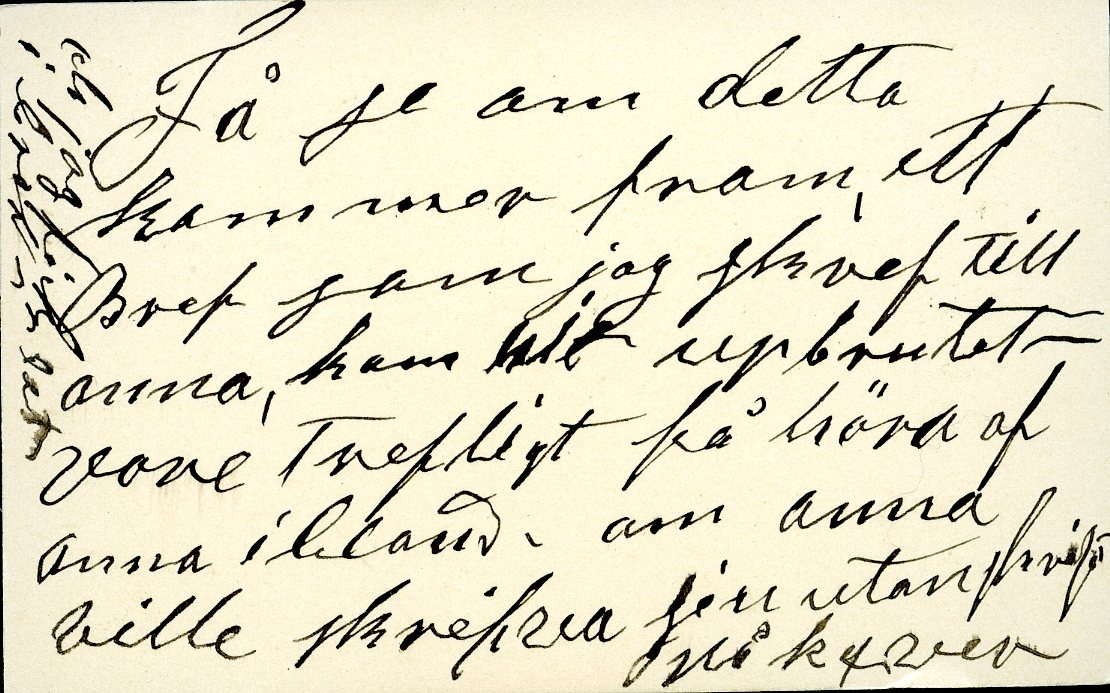 Få se om detta
kommer fram, ett
Bref som jag skref till
anna, kom hit upbrutet
vore Trefligt få höra af
anna ibland. om anna
ville skrifva sin utanskrift
på
och jag fick